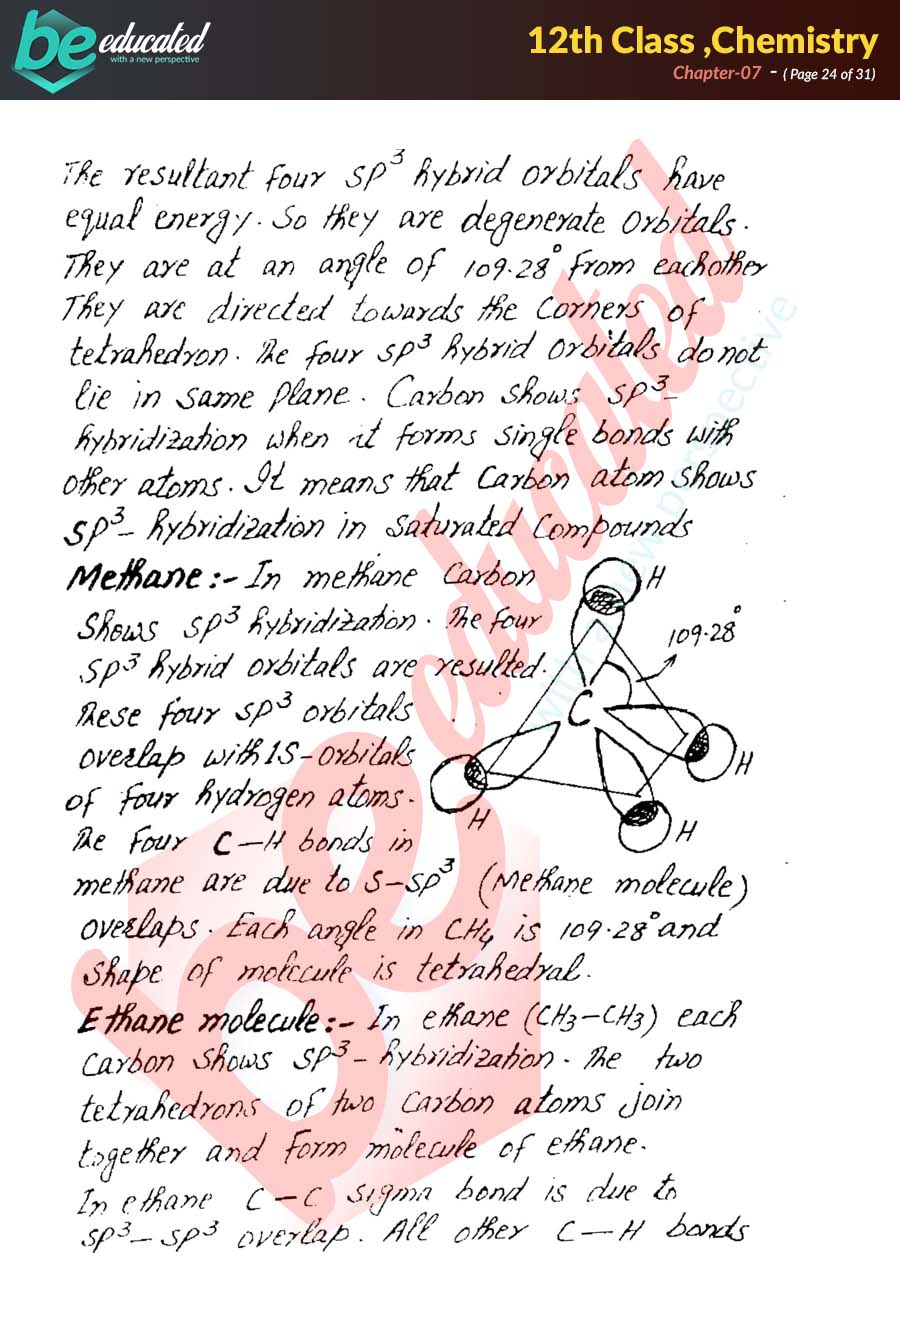 be educated
with a new perspective
12th Class ,Chemistry
Chapter-07 - ( Page 24 of 31)
The resultant four SP³ hybrid orbitals have
equal energy. So they are degenerate Orbitals.
They are at an angle of 109.28° from eachother
They are directed towards the Corners of
tetrahedron. The four SP³ hybrid Orbitals do not
lie in same Plane. Carbon shows SP³-
hybridization when it forms single bonds with
other atoms. It means that Carbon atom shows
SP³- hybridization in Saturated Compounds
Methane:- In methane Carbon
Shows SP³ hybridization. The four
SP³ hybrid orbitals are resulted.
These four SP³ orbitals
overlap with 1S-orbitals
of four hydrogen atoms.
The Four C-H bonds in
methane are due to S-SP³ (Methane molecule)
overlaps. Each angle in CH4 is 109.28° and
shape of molecule is tetrahedral.
H
109.28°
C
H
H
H
Ethane molecule:- In ethane (CH3-CH3) each
Carbon shows SP³- hybridization. The two
tetrahedrons of two Carbon atoms join
together and form molecule of ethane.
In ethane C-C sigma bond is due to
SP³-SP³ overlap. All other C-H bonds
be educated
perspective